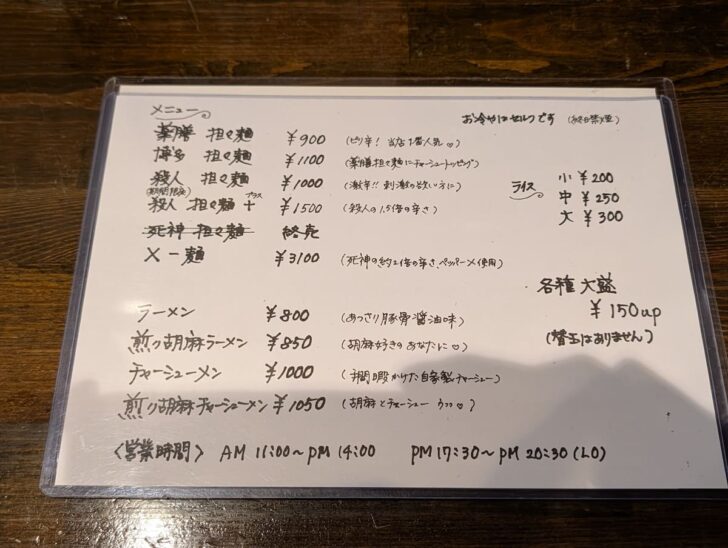 メニュー
お冷やはセルフです (終日禁煙)
薬膳 担々麺 ¥900 (ピリ辛! 当店1番人気♡)
博多 担々麺 ¥1100 (薬膳担々麺にチャーシュートッピング)
殺人 担々麺 ¥1000 (激辛!! 刺激の欲しい方に)
(期間限定)
殺人 担々麺 + プラス ¥1500 (殺人の1.5倍の辛さ)
死神 担々麺 終売
X-麺 ¥3100 (死神の約2倍の辛さ、ペッパーX使用)
ライス 小 ¥200
中 ¥250
大 ¥300
各種 大盛
¥150up
(替玉はありません)
ラーメン ¥800 (あっさり豚骨醤油味)
煎り胡麻ラーメン ¥850 (胡麻好きのあなたに♡)
チャーシューメン ¥1000 (手間暇かけた自家製チャーシュー)
煎り胡麻チャーシューメン ¥1050 (胡麻とチャーシュー ♡)
〈営業時間〉 AM 11:00〜PM 14:00 PM 17:30〜PM 20:30 (LO)